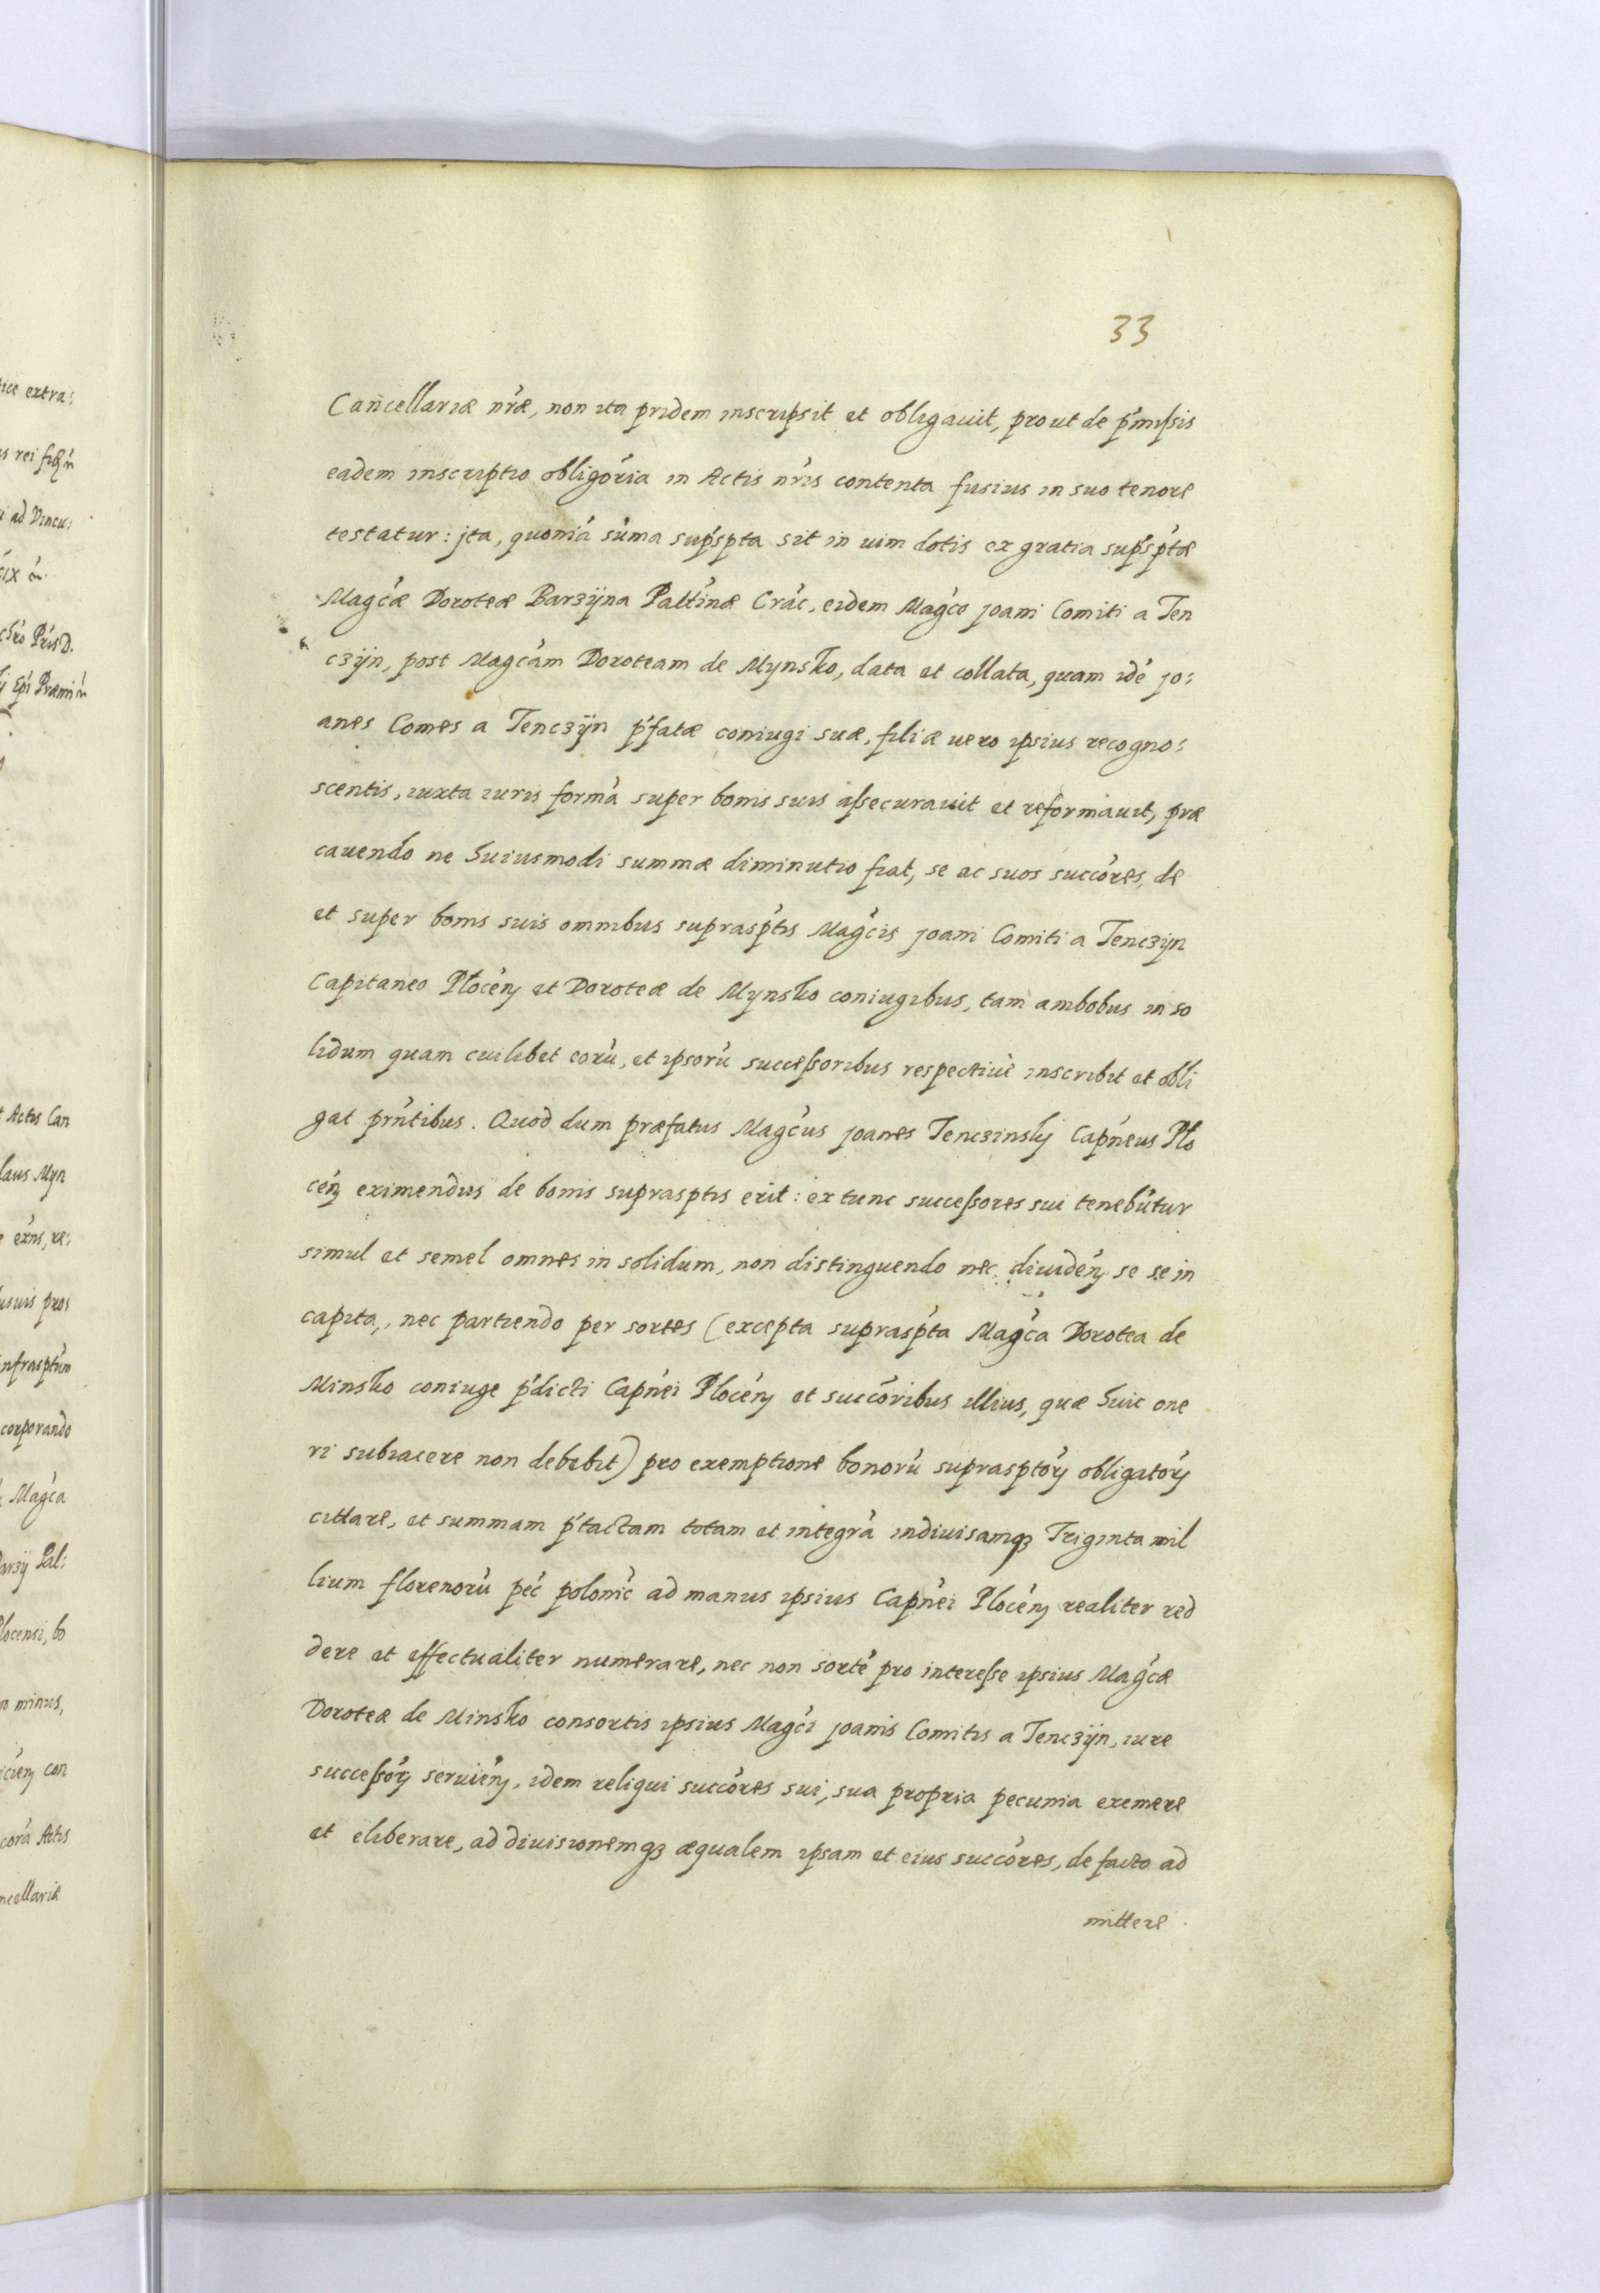 33
Cancellariæ nr̃æ, non ita pridem inscripsit et obligauit, prout de p̃missis
eadem inscriptio obligõria in Actis nr̃is contenta fusius in suo tenore
testatur: jta, quoniã sũma sup̃spta sit in uim dotis ex gratia sup̃sp̃tæ
Magc̃æ Doroteæ Barzÿna Paltĩnæ Crac̃, eidem Magc̃o joani Comiti a Ten
czÿn, post Magc̃am Doroteam de Mynsko, data et collata, quam idẽ jo:
anes Comes a Tenczÿn p̃fatæ coniugi suæ, filiæ uero ipsius recogno:
scentis, iuxta iuris formã super bonis suis assecurauit et reformauit, præ
cauendo ne huiusmodi summæ diminutio fiat, se ac suos succõres, de
et super bonis suis omnibus suprasp̃tis Magc̃is joani Comiti a Tenczÿn
Capitaneo Plocẽn et Doroteæ de Mynsko coniugibus, tam ambobus in so
lidum quam cuilibet eorũ, et ipsorũ successoribus respectiuè inscribit et obli
gat prñtibus. Quod dum præfatus Magc̃us joanes Tenczinskj Capñeus Plo
cẽn eximendus de bonis suprasptis erit: ex tunc successores sui tenebũtur
simul et semel omnes in solidum, non distinguendo nec diuidẽn se se in
capita, nec partiendo per sortes (excepta suprasp̃ta Magc̃a Dorotea de
Minsko coniuge p̃dicti Capñei Plocẽn et succõribus illius, quæ huic one
ri subiacere non debebit) pro exemptione bonorũ suprasptõr obligatõr
cittare, et summam p̃tactam totam et integrã indiuisamq3 Triginta mil
lium florenorũ pec̃ polonic̃ ad manus ipsius Capñei Plocẽn realiter red
dere et effectualiter numerare, nec non sortẽ pro interesse ipsius Magc̃æ
Doroteæ de Minsko consortis ipsius Magc̃i joanis Comitis a Tenczÿn, iure
successõr seruiẽn, idem reliqui succõres sui, sua propria pecunia exemere
et eliberare, ad diuisionemq3 æqualem ipsam et eius succõres, de facto ad
mittere